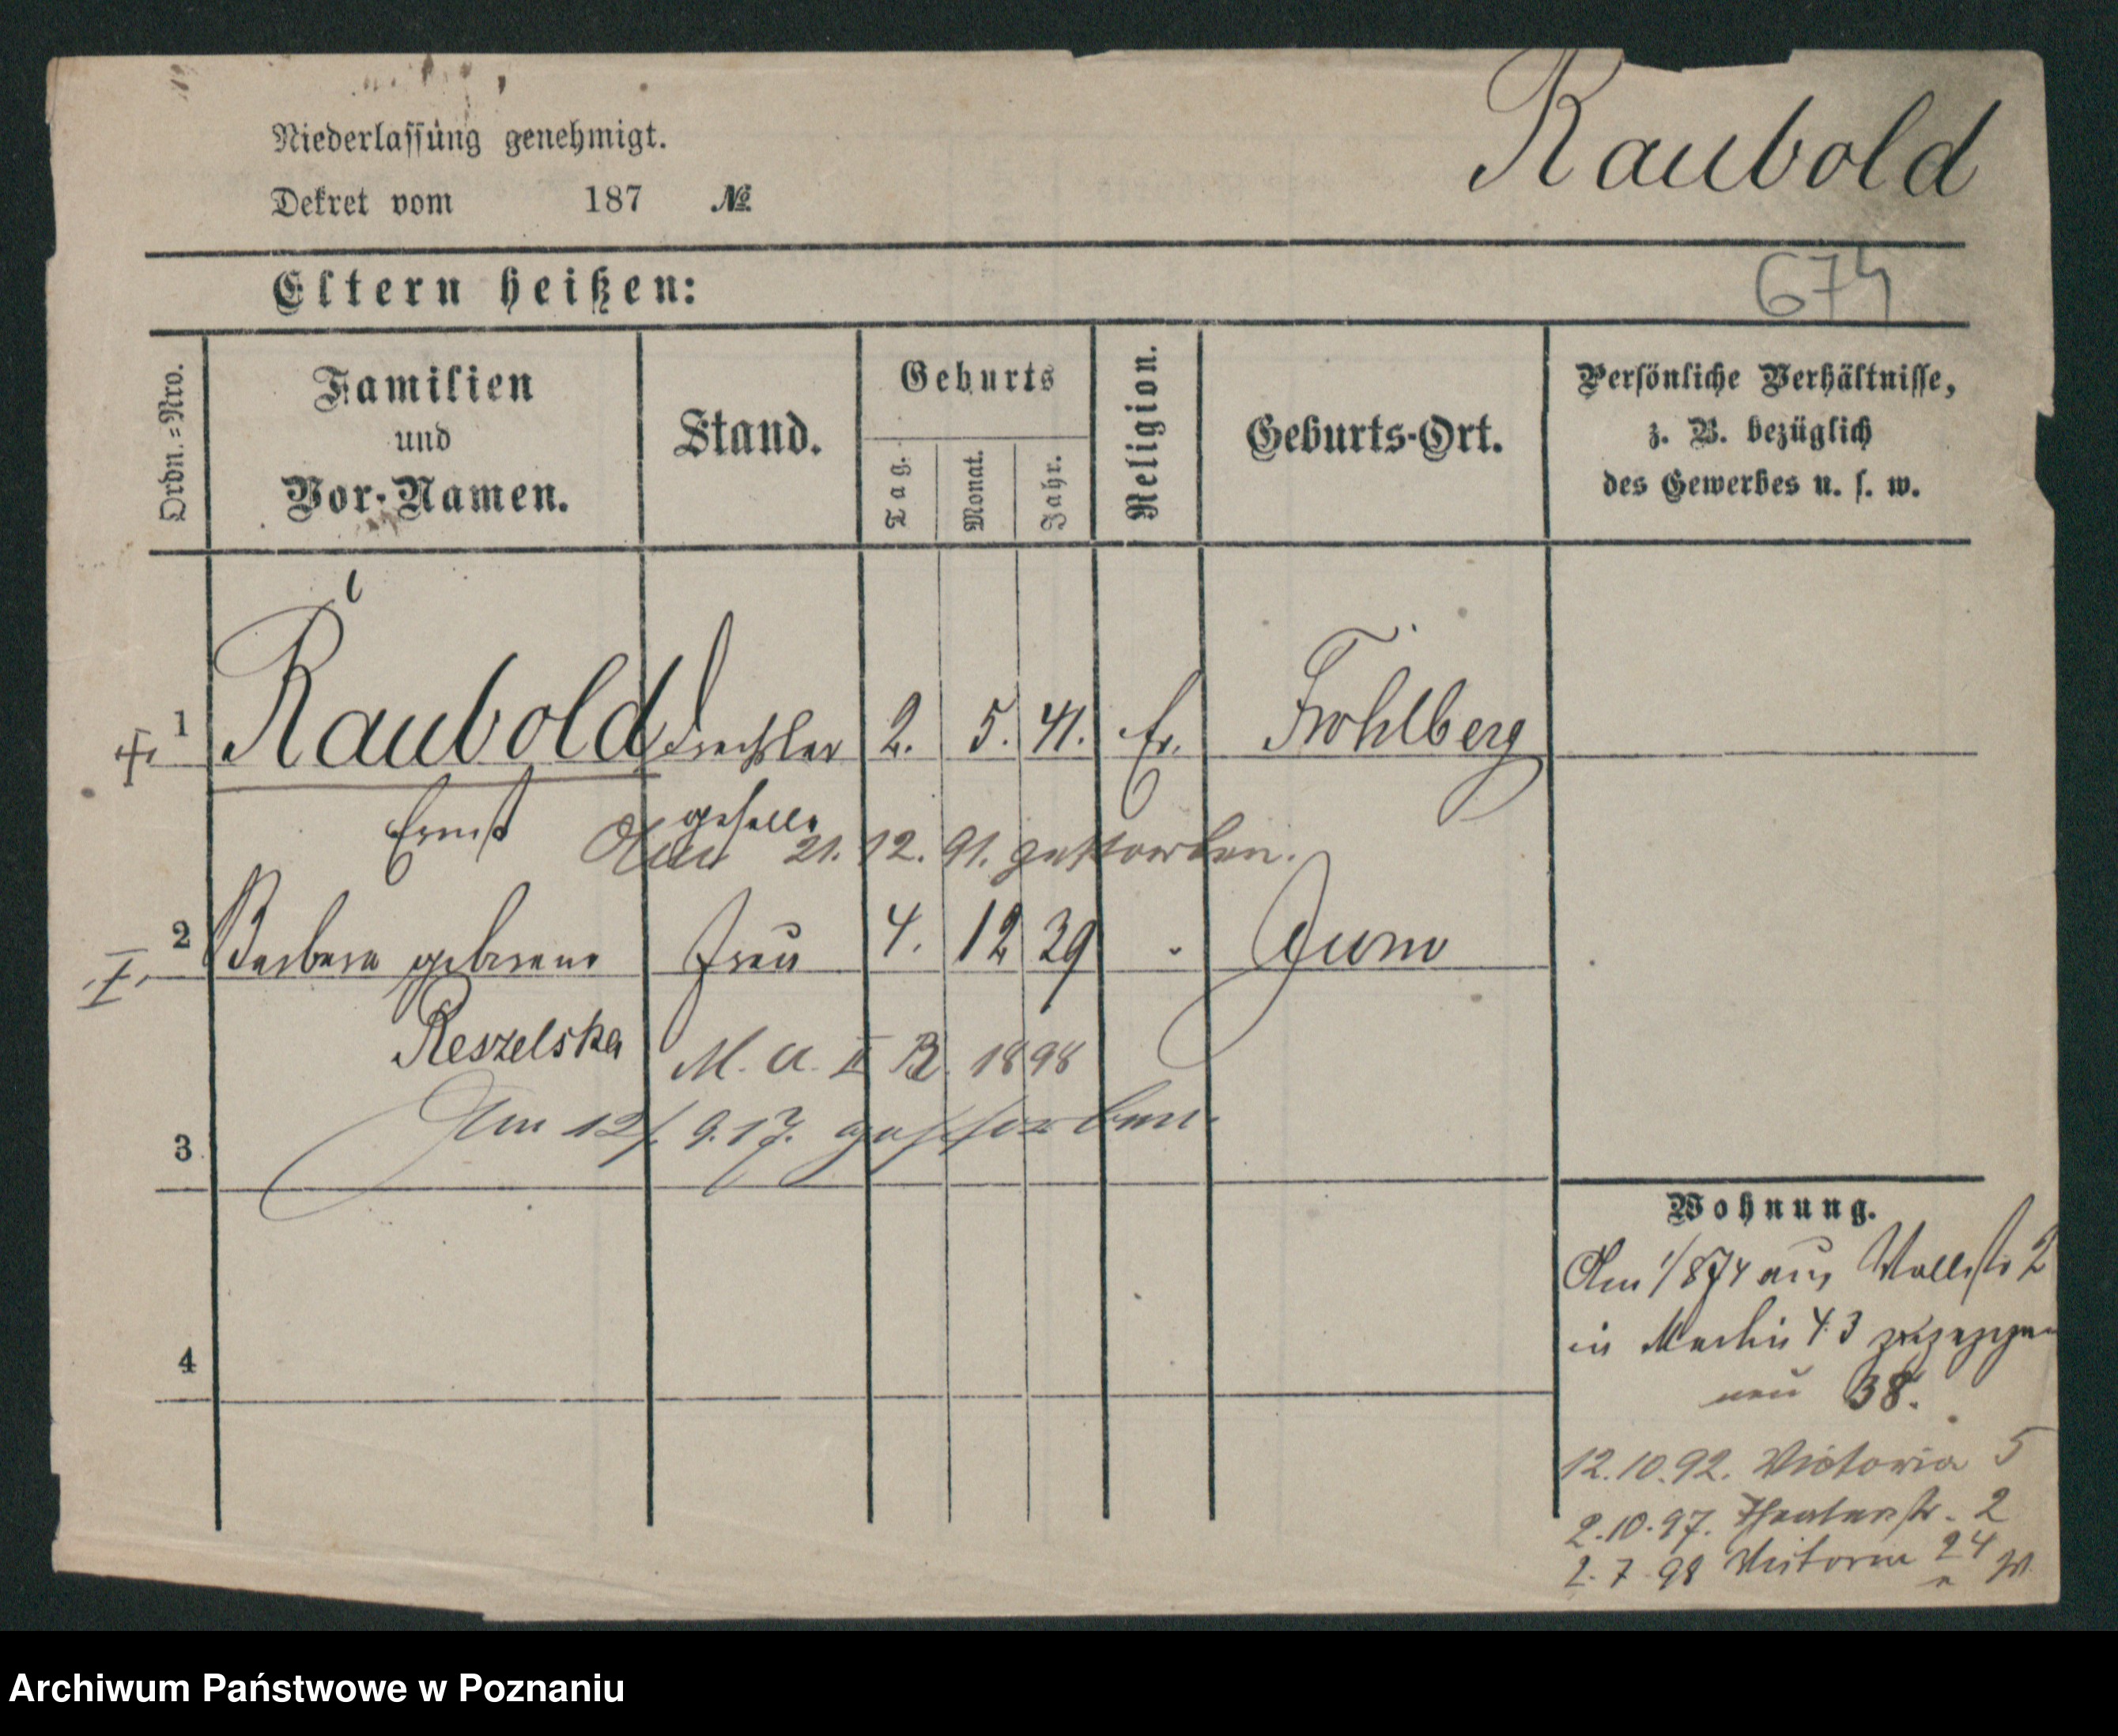 Raubold
Niederlassung genehmigt.
Dekret vom 187 №
674
Eltern heißen:
Ordn.=Nro.
Familien
und
Vor-Namen.
Stand.
Geburts
Tag.
Monat.
Jahr.
Religion.
Geburts-Ort.
Persönliche Verhältnisse,
z. B. bezüglich
des Gewerbes u. s. w.
1 Raubold Drechsler 2. 5. 41. Ev. Frohlberg
Ernst geselle
Am 21. 12. 91. gestorben.
2 Barbara geborene Frau 4. 12 39 Juno
Reszelska
M. A. II B. 1898
Am 12/. 9. 17. gestorben.
3
4
Wohnung.
Am 1/8 74 aus Wallstr 2
in Martin 43 zugezogen
neu 38.
12.10.92. Victoria 5
2.10.97. Theaterstr. 2
2.7 98 Victoria 24
Archiwum Państwowe w Poznaniu